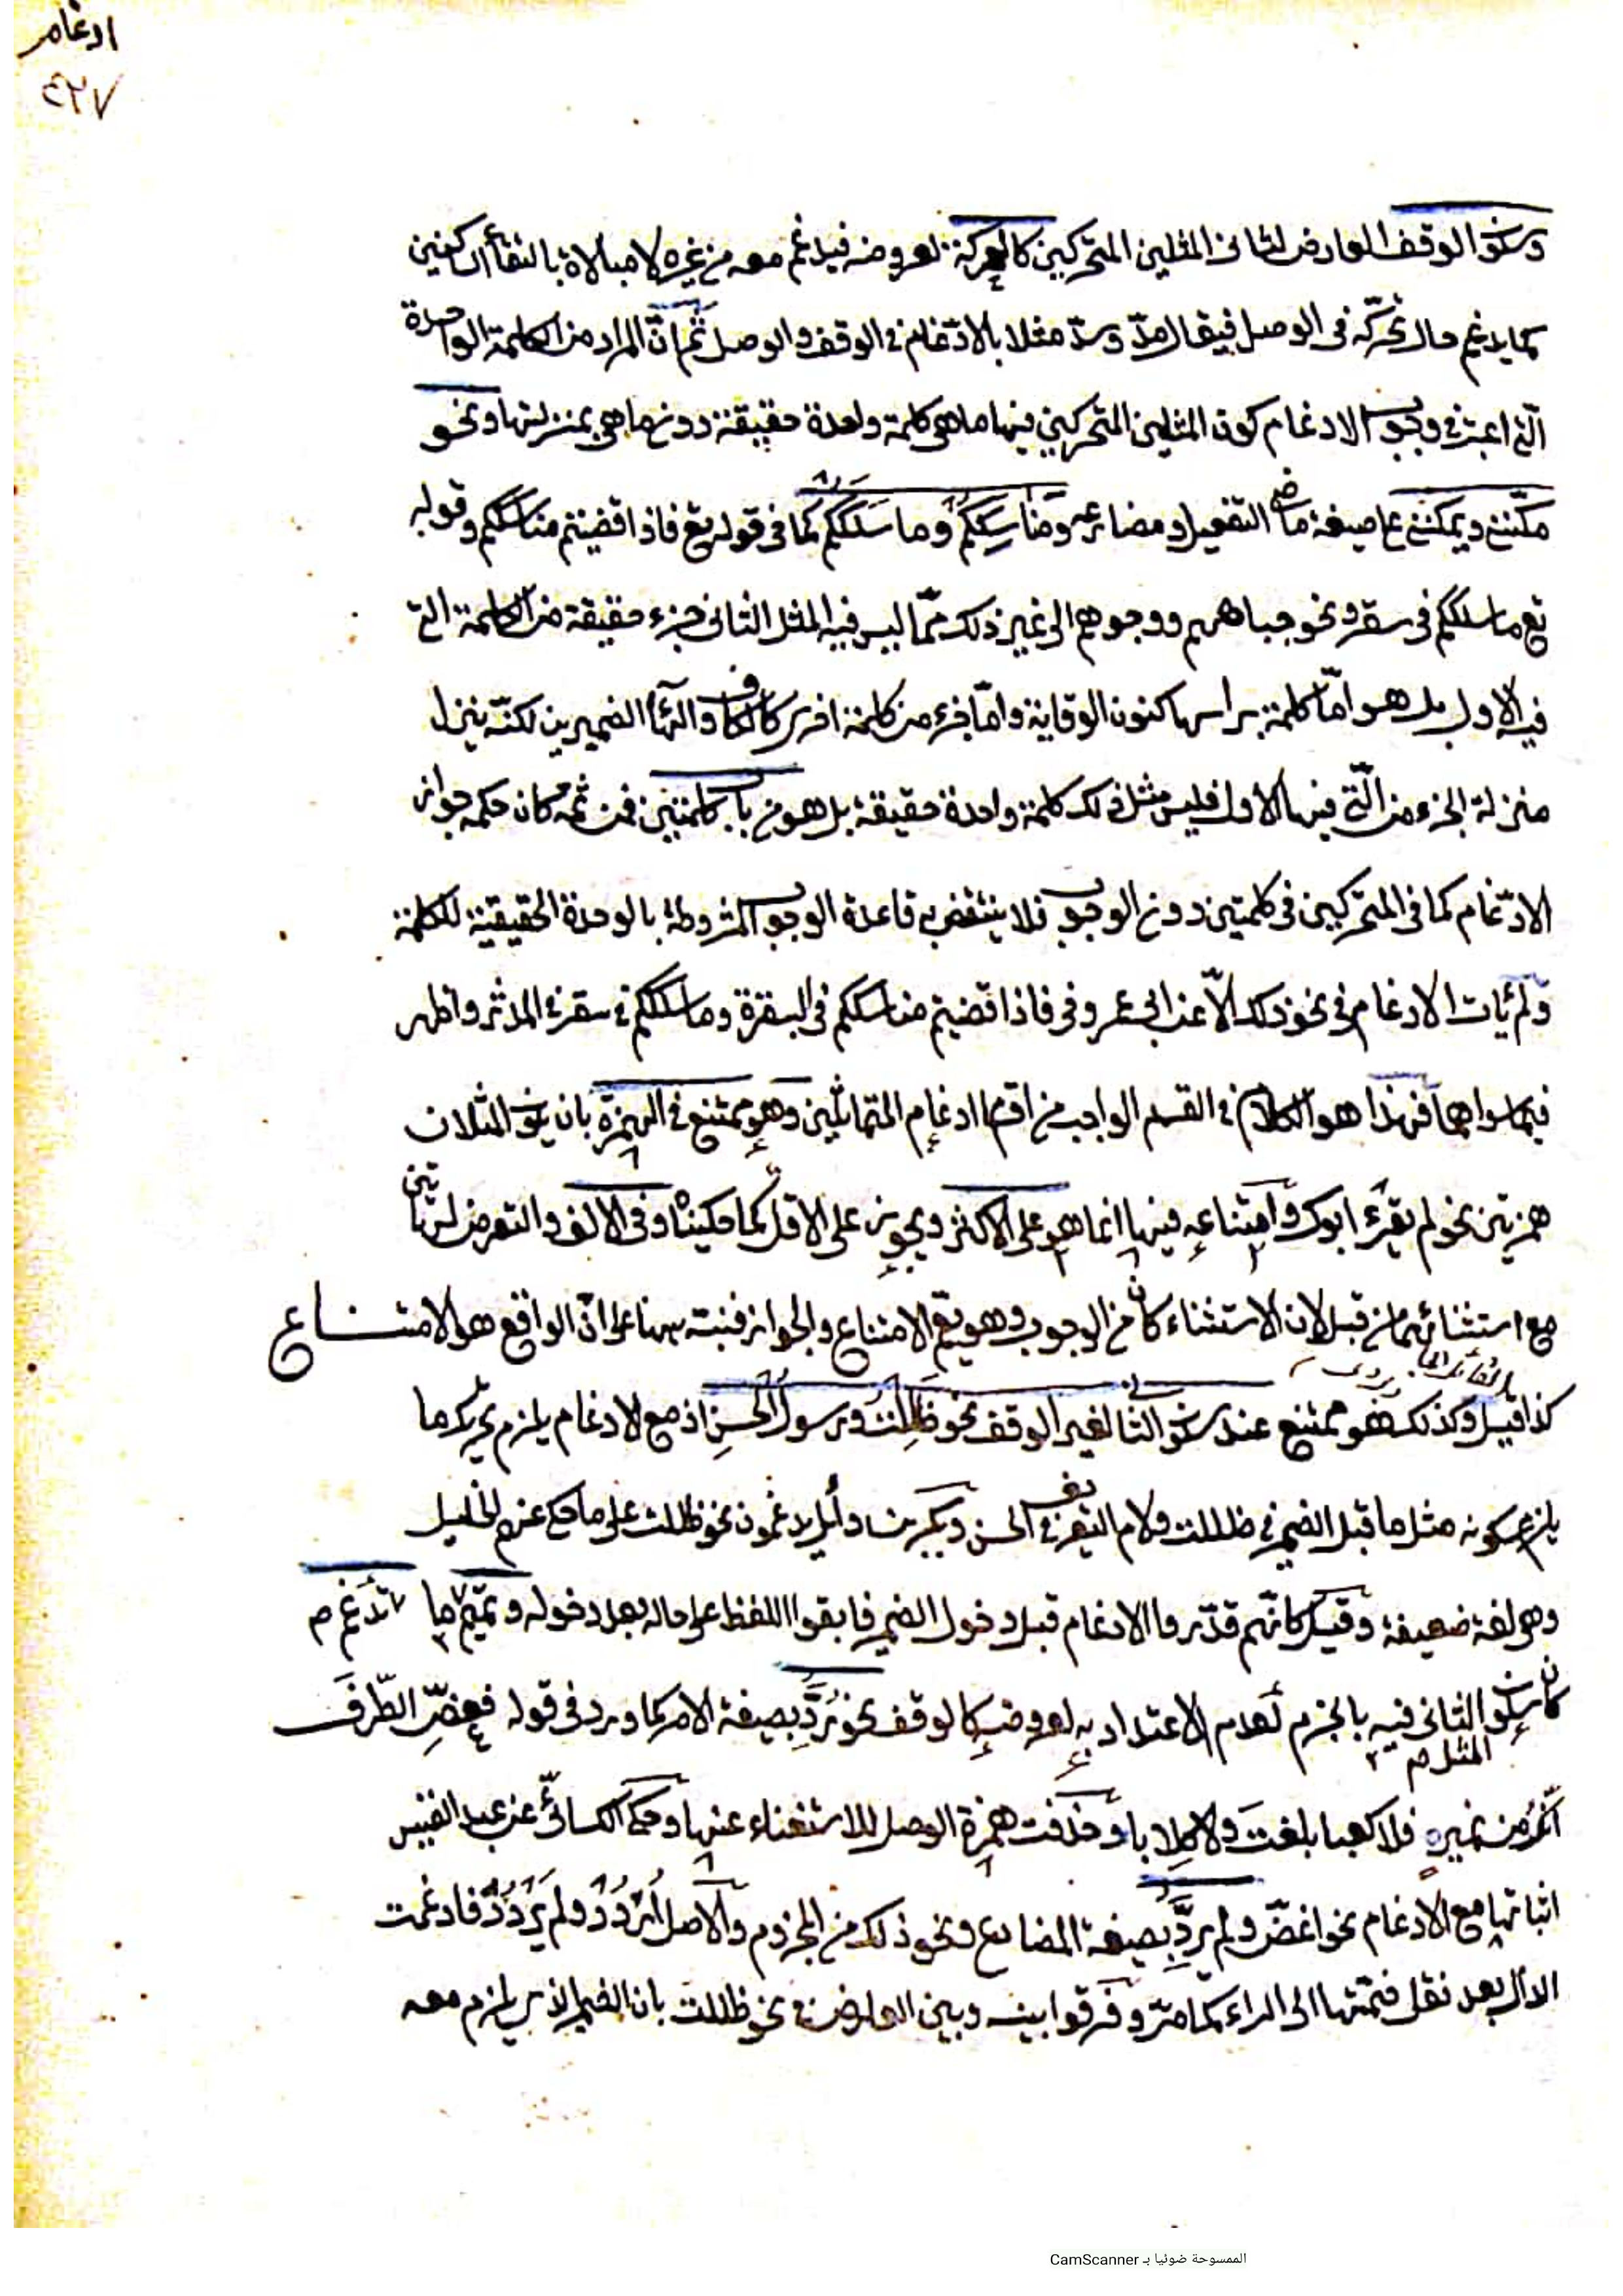 ادغام
٤٢٧
وسكون الوقف العارض لثاني المثلين المتحركين كالحركة لعروضه فيدغم معه من غيره لا مبالاة بالتقاء الساكنين
كما يدغم حال تحركه في الوصل فيقال مدّ وسدّ مثلا بالادّغام في الوقف والوصل ثم انّ المراد من الكلمة الواحدة
الّتي اعتبر في وجوب الادغام كون المثلين المتحركين فيها ما هي كلمة واحدة حقيقة دون ما هي بمنزلتها ونحو
مكّنني ويمكّنني على صيغة ماضي التفعيل ومضارعه ومناسككم وما سلككم كما في قوله تع فاذا قضيتم مناسككم وقوله
تع ما سلككم في سقر ونحو جباههم ووجوههم الى غير ذلك ممّا ليس فيه المثل الثاني جزء حقيقة من الكلمة التي
فيه الاول بل هو امّا كلمة براسها كنون الوقاية وامّا جزء من كلمة اخرى كالكاف والهاء الضميرين لكنّه ينزل
منزلة الجزء من الّتي فيها الاول فليس مثل ذلك كلمة واحدة حقيقة بل هو من باب كلمتين فمن ثمه كان حكمه جواز
الادّغام كما في المتحركين في كلمتين دون الوجوب فلا ينتقض به قاعدة الوجوب المشروطة بالوحدة الحقيقية للكلمة
ولم يأت الادغام في نحو ذلك الّا عند ابي عمرو في فاذا قضيتم مناسككم في البقرة وما سلككم في سقر في المدثر واظهر
فيما سواهما فهذا هو الكلام في القسم الواجب من اقسام ادغام المتماثلين وهو ممتنع في الهمزة بان يكون المثلان
همزتين نحو لم يقرء ابوك وامتناعه فيها انما هو على الاكثر ويجوز على الاقل كما حكيناه وفي الالف والتعرض لهاتين
مع استثنائهما من قبل لان الاستثناء كان من الوجوب وهو يعمّ الامتناع والجواز فنبّه ههنا على انّ الواقع هو الامتناع
كذا قيل وكذلك هو ممتنع عند سكون الثاني لغير الوقف نحو ظَلِلْتُ ورسولُ الْحَسن اذ مع الادغام يلزم تحريك ما
يلزم سكونه مثل ما قبل الضمير في ظللت ولام التعريف في الحسن وبكر بن وائل يدغمون نحو ظللت على ما حكى عنهم الخليل
وهي لغة ضعيفة وقيل كانّهم قدّروا الادغام قبل دخول الضمير فابقوا اللفظ على حاله بعد دخوله وتميم تدغم ما
كان سكون المثل الثاني فيه بالجزم لعدم الاعتداد به لعروضه كالوقف نحو رُدَّ بصيغة الامر كما ورد في قوله فغضّ الطّرفَ
انّك من نمير فلا كعبا بلغتَ ولا كلابا وحذفت همزة الوصل للاستغناء عنها وحكى الكسائيّ عن عبد القيس
اثباتها مع الادغام نحو اغضّ ولم يردّ بصيغة المضارع ونحو ذلك من المجزوم والاصل اُرْدُدْ ولم يَرْدُدْ فادغمت
الدال بعد نقل ضمّتها الى الراء كما مرّ وفرقوا بينه وبين العارض في نحو ظللت بان الضمير الذي يلزم معه
الممسوحة ضوئيا بـ CamScanner